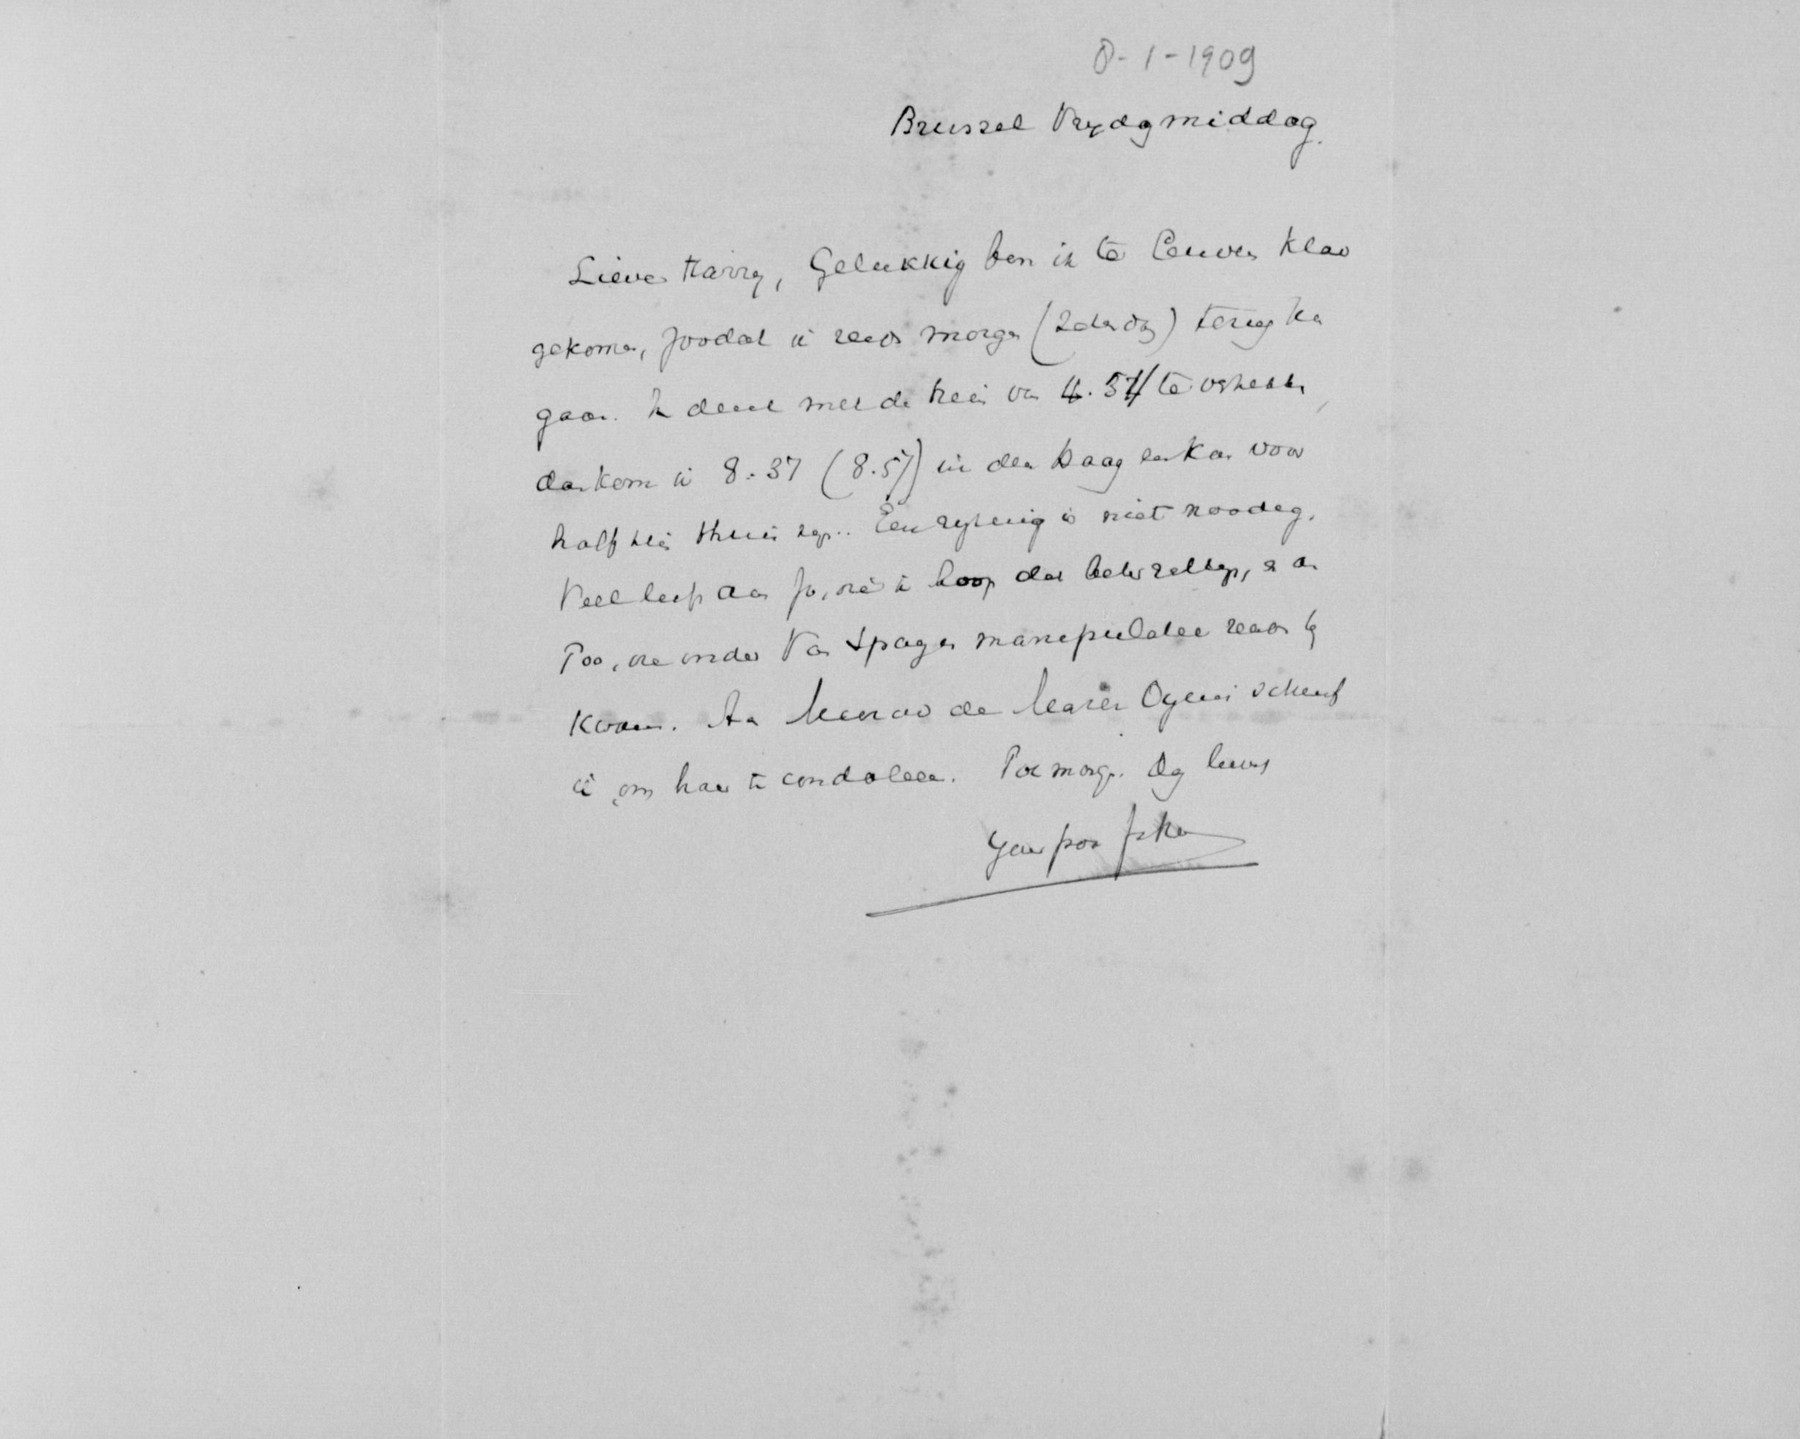 8-1-1909
Brussel Vrydagmiddag.
Lieve Harry, Gelukkig ben ik te Leuven klaar
gekomen, zoodat ik reeds morgen (Zaterdag) terug kan
gaan. Ik denk met de trein van 4.57 te vertrekken,
dan kom ik 8.37 (8.57) in den Haag en kan voor
half tien thuis zyn. Een rytuig is niet noodig.
Veel liefs aan Jo, die ik hoop dat beter zal zyn, en aan
Too, die onder Van manipulatie
kwam. Aan Mevrouw de schreef
ik om haar te condoleeren. Tot morgen. Dag lieve